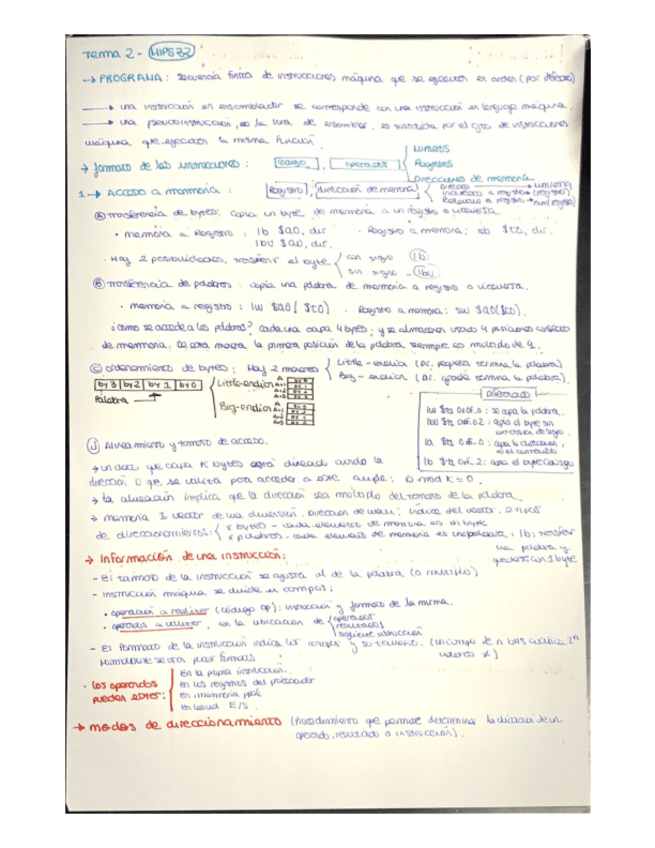 Tema 2 - MIPS32
→ PROGRAMA: Secuencia finita de instrucciones máquina que se ejecutan en orden (por defecto)
→ una instrucción en ensamblador se corresponde con una instrucción en lenguaje máquina.
→ una pseudoinstrucción, en la hora de ensamblar, es sustituida por el de instrucciones
máquina que ejecutan la misma función.
→ formato de las instrucciones: código, operandos
Números
Registros
Direcciones de memoria
1 → Acceso a memoria: Registro, dirección de memoria
Directo → numérico
Indirecto a registro → (registro)
Relativo a registro → num(registro)
Ⓐ transferencia de bytes: copia un byte de memoria a un registro o viceversa.
· memoria a Registro: lb $a0, dir · Registro a memoria: sb $t0, dir.
lbu $a0, dir.
· Hay 2 posibilidades, transferir el byte
con signo lb
sin signo - lbu
Ⓑ transferencia de palabras: copia una palabra de memoria a registro o viceversa.
· memoria a registro: lw $a0($t0) · Registro a memoria: sw $a0($t0).
¿cómo se accede a las palabras? cada una ocupa 4 bytes, y se almacenan usando 4 posiciones
de memoria, de esta manera, la primera posición de la palabra siempre es múltiplo de 4.
Ⓒ ordenamiento de bytes: Hay 2 maneras
Little-endian (Dir. pequeña termina la palabra)
Big-endian (Dir. grande termina la palabra).
by3 | by2 | by1 | by0
Palabra
Little-endian
Big-endian
lw
: se copia la palabra.
: copia el byte sin
extensión de signo.
la
: copia la dirección,
no el contenido
lb
: copia el byte con signo
Alineamiento y tamaño de acceso.
→ un dato que ocupa K bytes está alineado cuando la
dirección D que se utiliza para acceder a este cumple: D mod K = 0.
→ la alineación implica que la dirección sea múltiplo del tamaño de la palabra.
→ memoria: vector de una dimensión. Dirección de mem: índice del vector. 2 tipos
de direccionamientos:
x bytes - cada elemento de memoria es un byte
x palabras - cada elemento de memoria es una palabra. lb: transferir
una palabra y
quedarse con 1 byte
→ Información de una instrucción:
- El tamaño de la instrucción se ajusta al de la palabra (o múltiplo)
- Instrucción máquina se divide en campos:
· operación a realizar (código op): instrucción y formato de la misma.
· operandos a utilizar, con la ubicación de
operandos
resultados
siguiente instrucción
- El formato de la instrucción indica los campos y su tamaño. (un campo de n bits codifica 2ⁿ
valores ≠)
· los operandos
pueden estar:
en la propia instrucción.
en los registros del procesador
en memoria ppal.
E/S.
→ modos de direccionamiento (Procedimiento que permite determinar la ubicación de un
operando, resultado o instrucción).